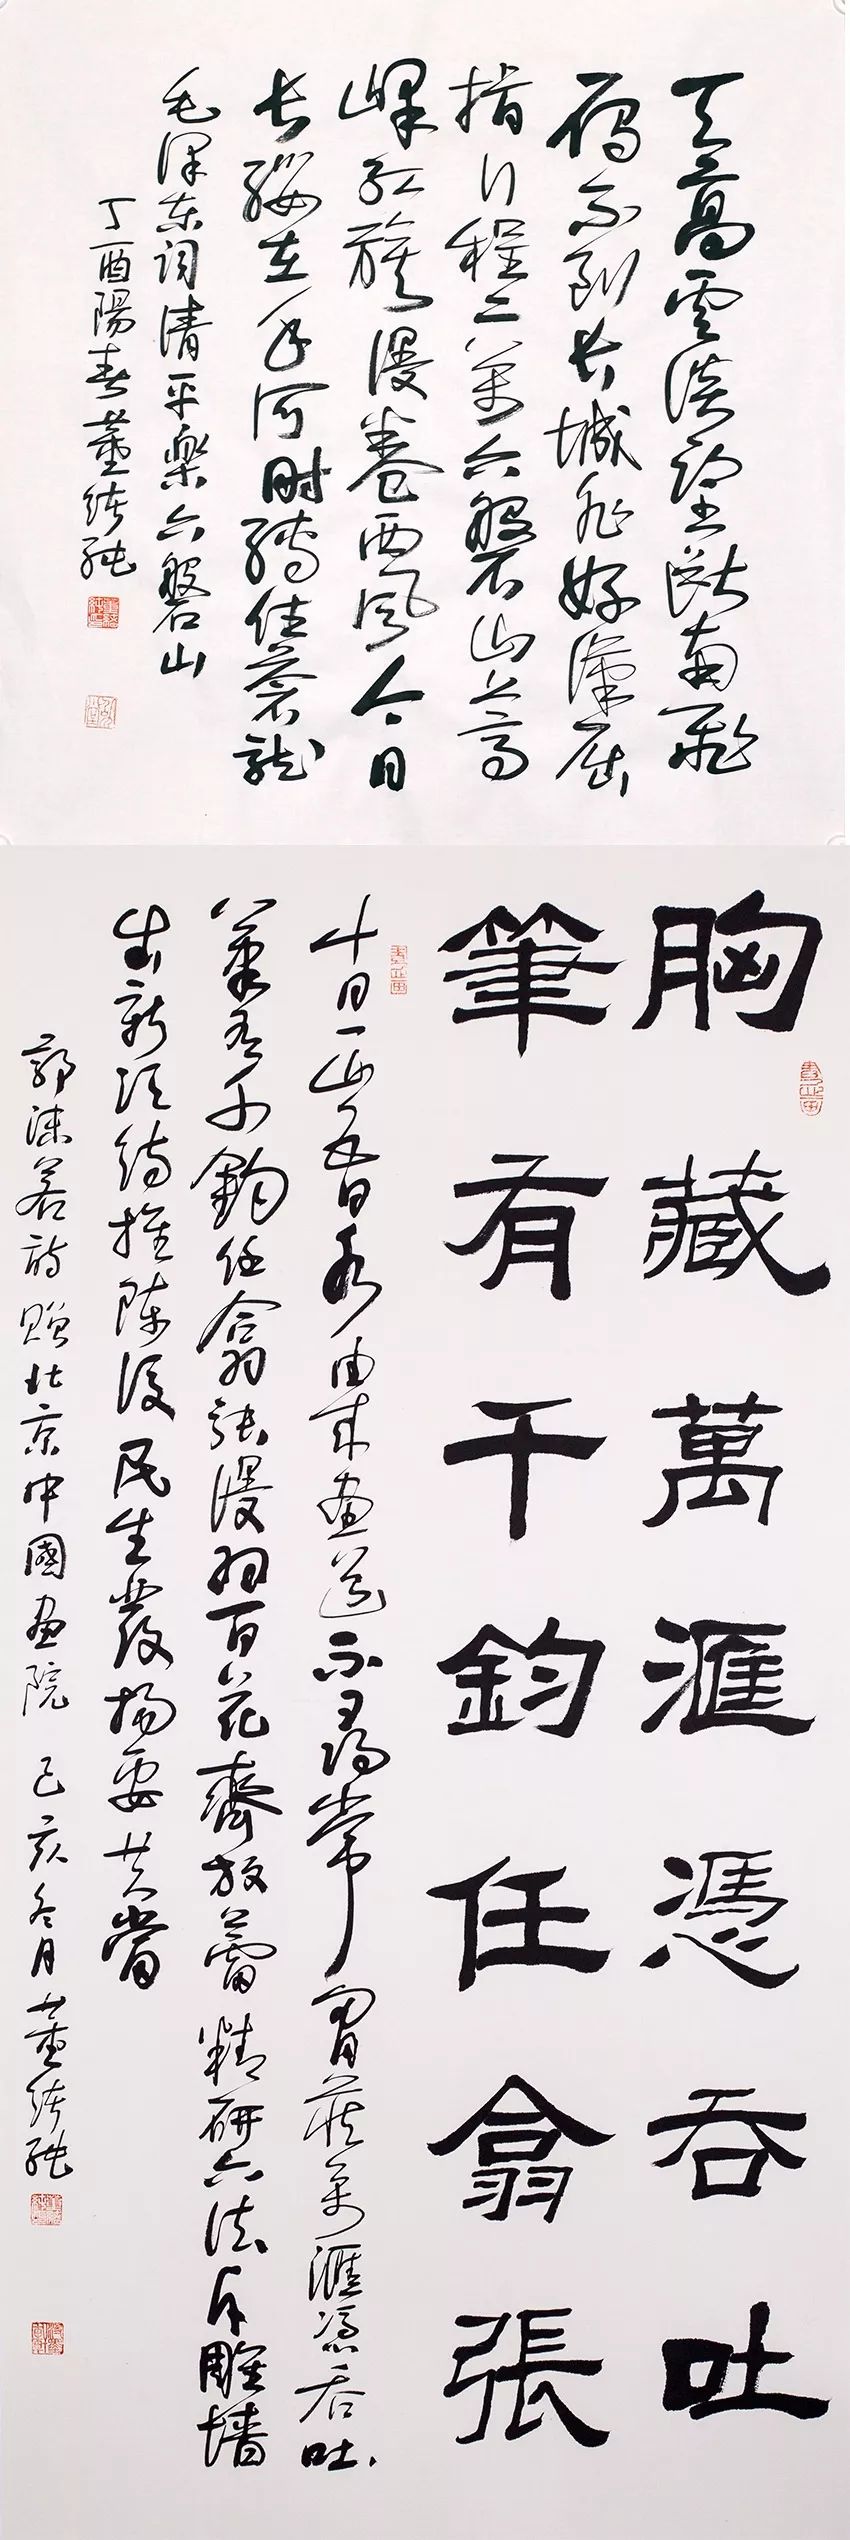 天高雲淡望斷南飛
雁不到長城非好漢屈
指行程二萬六磐山上高
峰紅旗漫卷西風今日
長纓在手何時縛住蒼龍
毛澤東詞清平樂六磐山
丁酉陽春董
胸藏萬滙憑吞吐
筆有千鈞任翕張
十日一山五日水由来畫道不尋常胸藏萬滙憑吞吐
筆有千鈞任翕張漫羽百花齊放蕾精研六法斥雕墻
出新須待推陳後民生發揚要共嘗
郭沫若詩贈北京中國畫院 己亥冬月董